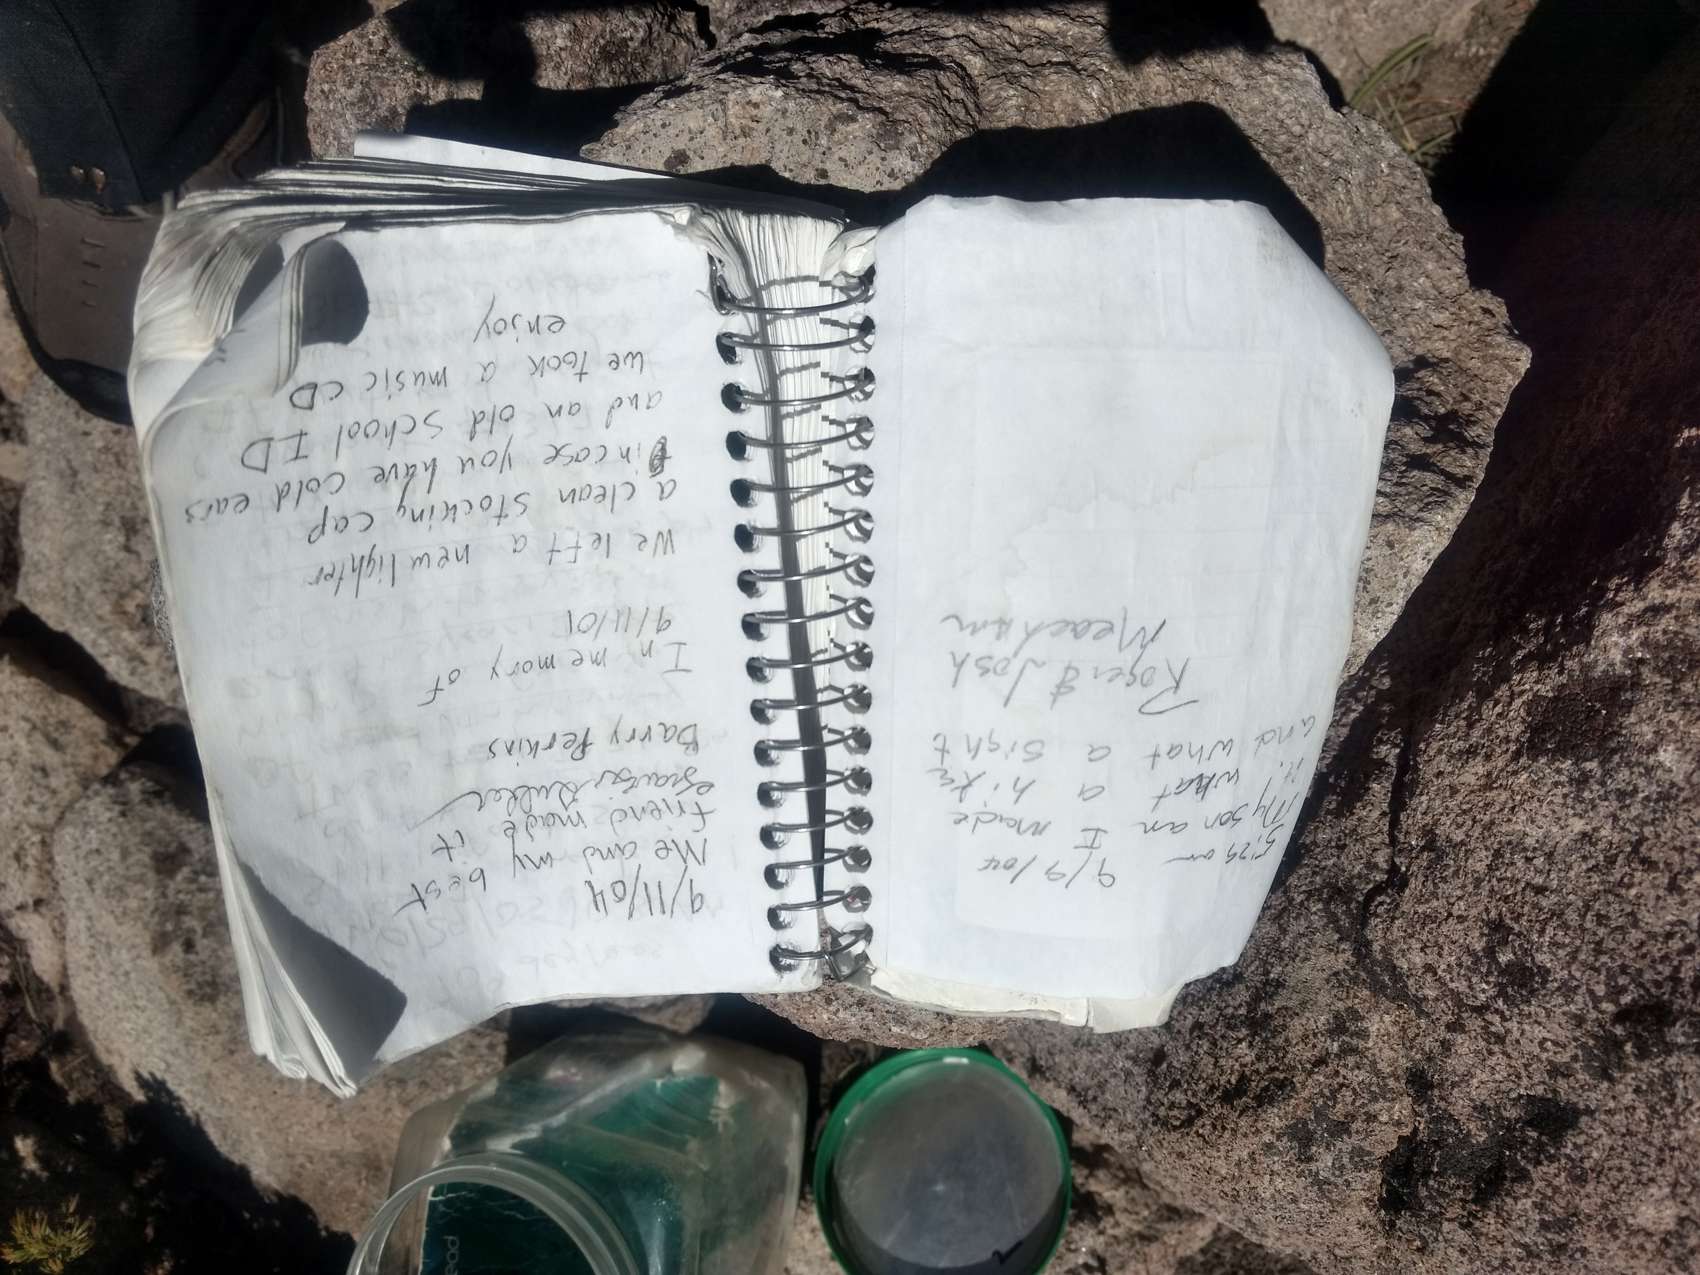 9/9/04
5:29 am
My son an I made
it! what a hike
and what a sight
Roger & Josh
Meacham
9/11/04
Me and my best
friend made it
Barry Perkins
In memory of
9/11/01
We left a new lighter
a clean stocking cap
in case you have cold ears
and an old school ID
we took a music CD
enjoy